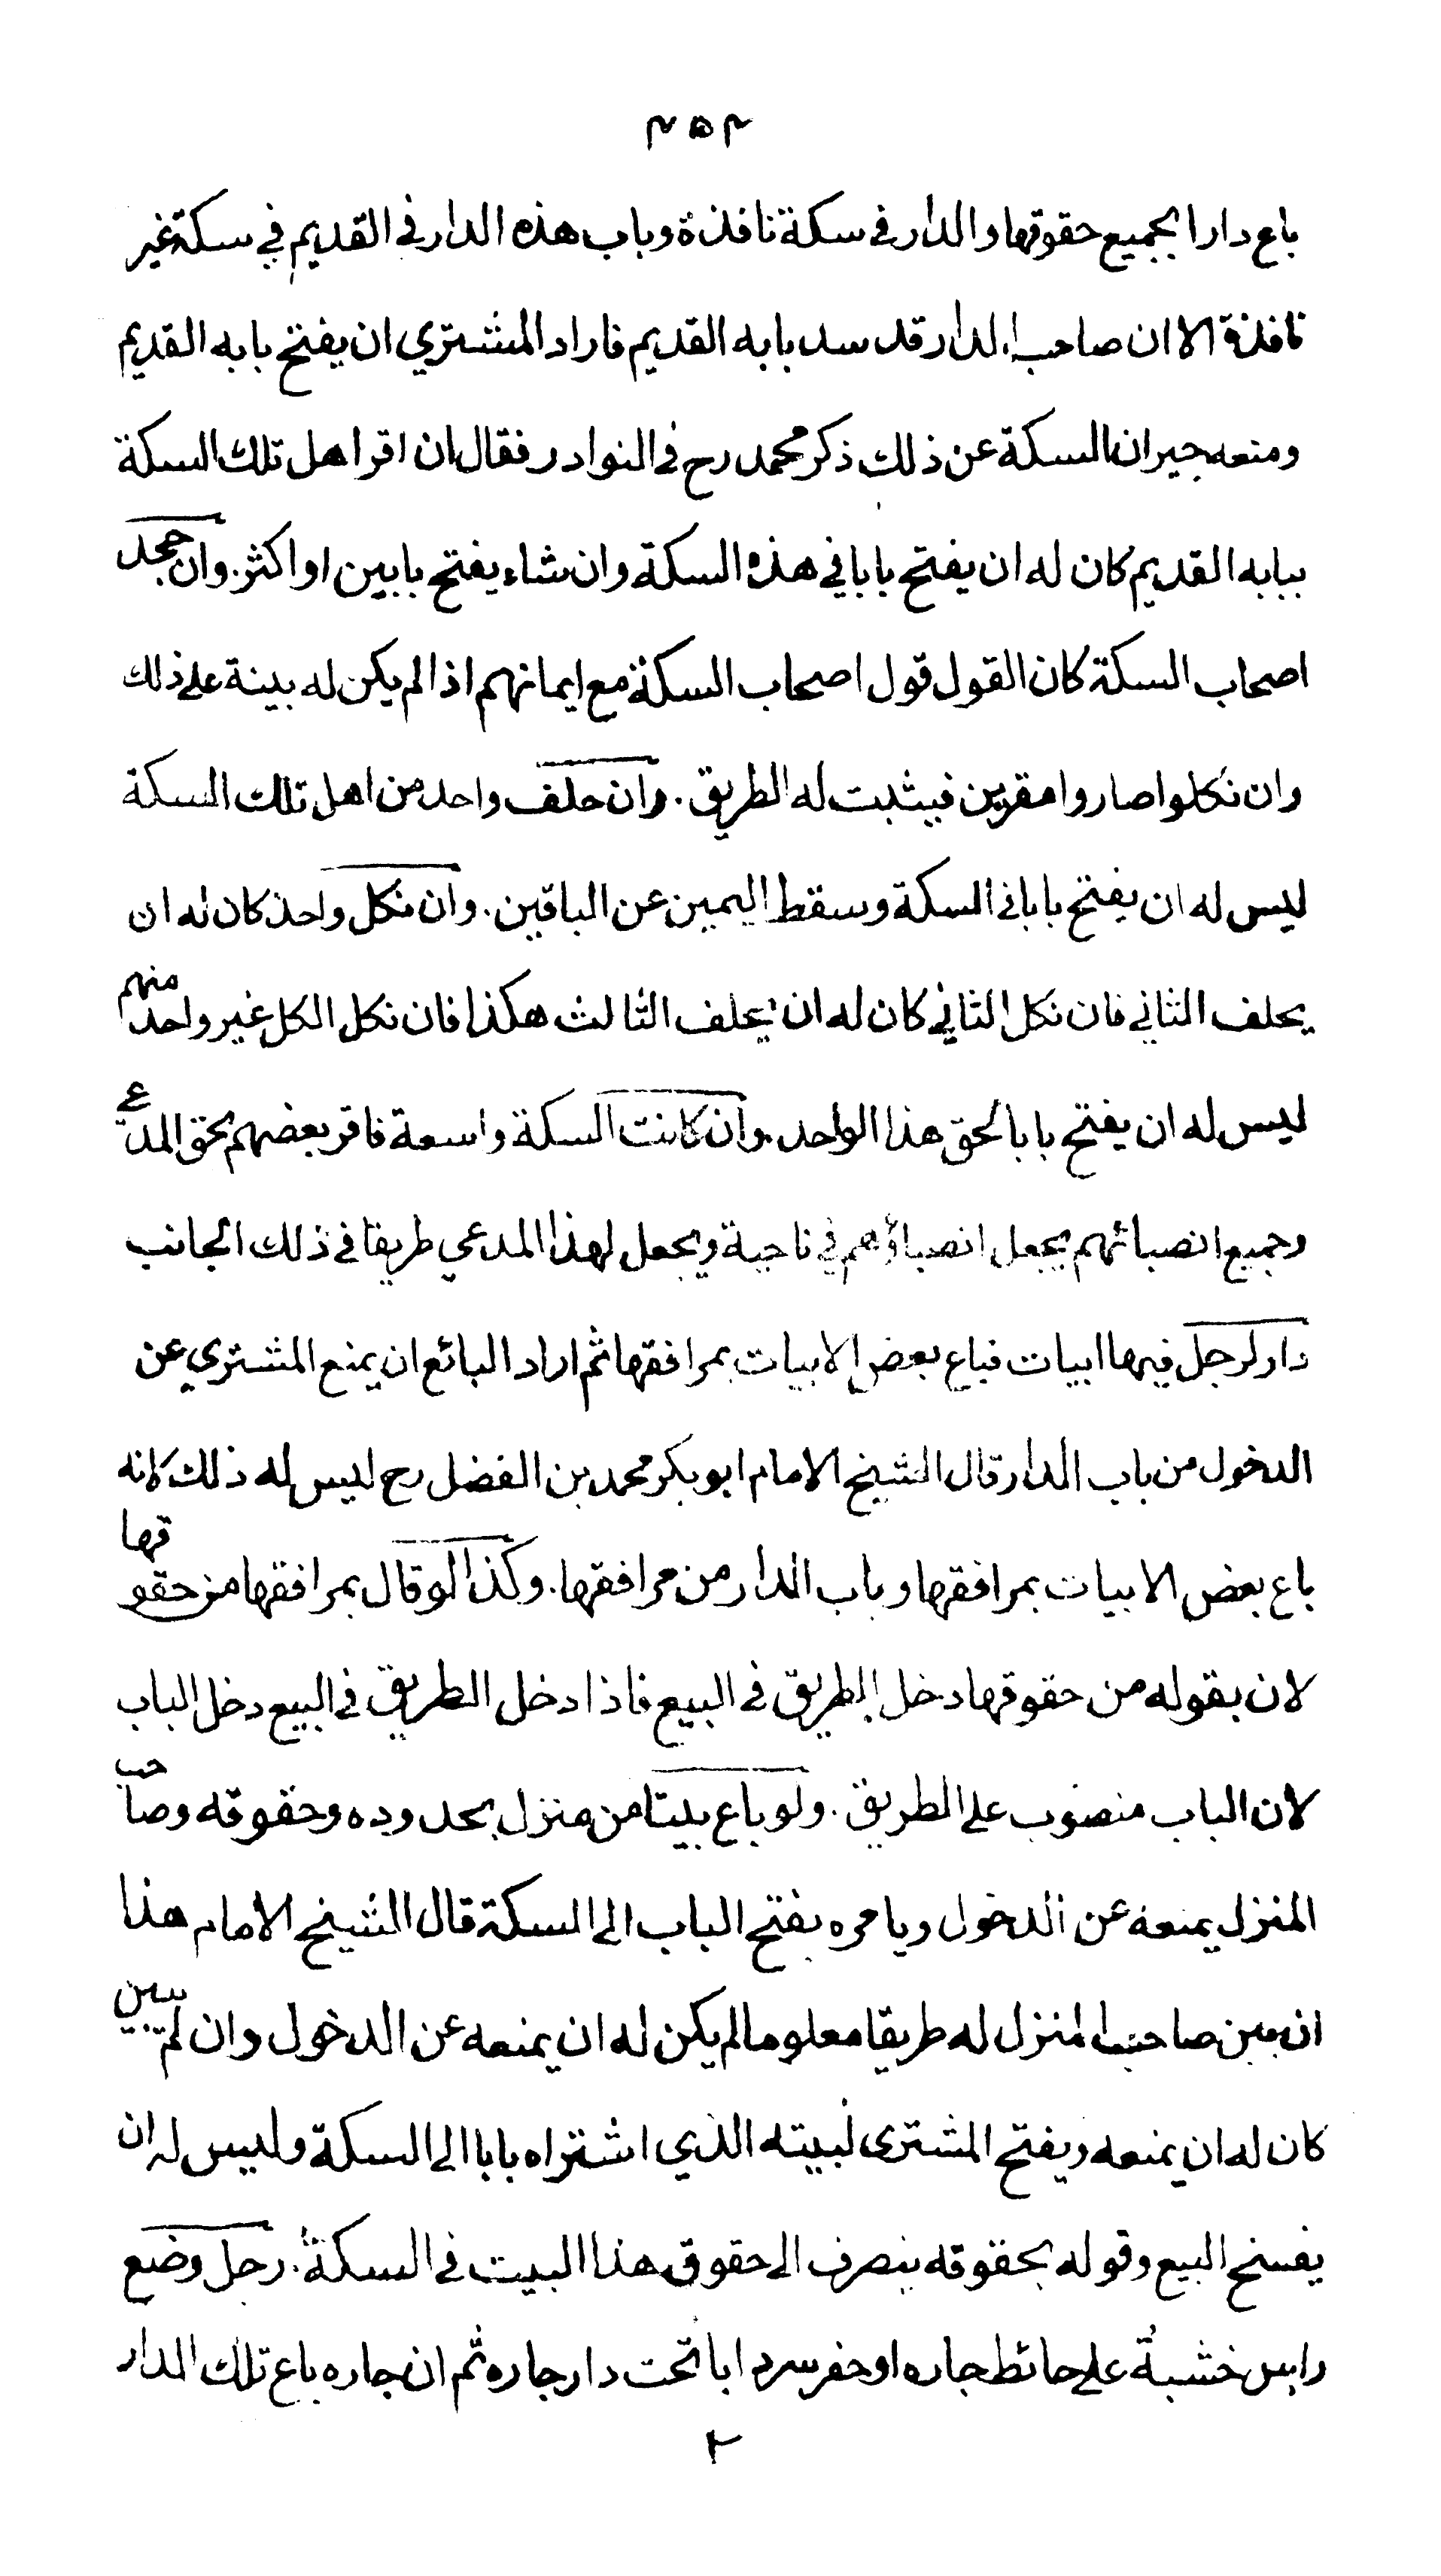 ٢٥٢
باع دارا بجميع حقوقها والدار في سكة نافذة وباب هذه الدار في القديم في سكة غير
نافذة الا ان صاحب الدار قد سد بابه القديم فاراد المشتري ان يفتح بابه القديم
ومنعه جيران السكة عن ذلك ذكر محمد رح في النوادر فقال ان اقر اهل تلك السكة
ببابه القديم كان له ان يفتح بابا في هذه السكة وان شاء يفتح بابين او اكثر. وان جحد
اصحاب السكة كان القول قول اصحاب السكة مع ايمانهم اذا لم يكن له بينة على ذلك
وان نكلوا صاروا مقرين فيثبت له الطريق. وان حلف واحد من اهل تلك السكة
ليس له ان يفتح بابا في السكة وسقط اليمين عن الباقين. وان نكل واحد كان له ان
يحلف الثاني فان نكل الثاني كان له ان يحلف الثالث هكذا فان نكل الكل غير واحد منهم
ليس له ان يفتح بابا لحق هذا الواحد. وان كانت السكة واسعة فاقر بعضهم بحق المدعي
وجميع انصبائهم يجعل انصباؤهم في ناحية ويجعل لهذا المدعي طريقا في ذلك الجانب
دار لرجل فيها ابيات فباع بعض الابيات بمرافقها ثم اراد البائع ان يمنع المشتري عن
الدخول من باب الدار قال الشيخ الامام ابو بكر محمد بن الفضل رح ليس له ذلك لانه
باع بعض الابيات بمرافقها وباب الدار من مرافقها. وكذا لو قال بمرافقها من حقوقها
لان بقوله من حقوقها دخل الطريق في البيع فاذا دخل الطريق في البيع دخل الباب
لان الباب منصوب على الطريق. ولو باع بيتا من منزل بحدوده وحقوقه وصاحب
المنزل يمنعه عن الدخول ويامره بفتح الباب الى السكة قال الشيخ الامام هذا
ان بين صاحب المنزل له طريقا معلوما لم يكن له ان يمنعه عن الدخول وان لم يبين
كان له ان يمنعه ويفتح المشتري لبيته الذي اشتراه بابا الى السكة وليس له ان
يفسخ البيع وقوله بحقوقه ينصرف الى حقوق هذا البيت في السكة. رجل وضع
راس خشبة على حائط جاره او حفر سردابا تحت دار جاره ثم ان جاره باع تلك الدار
٢